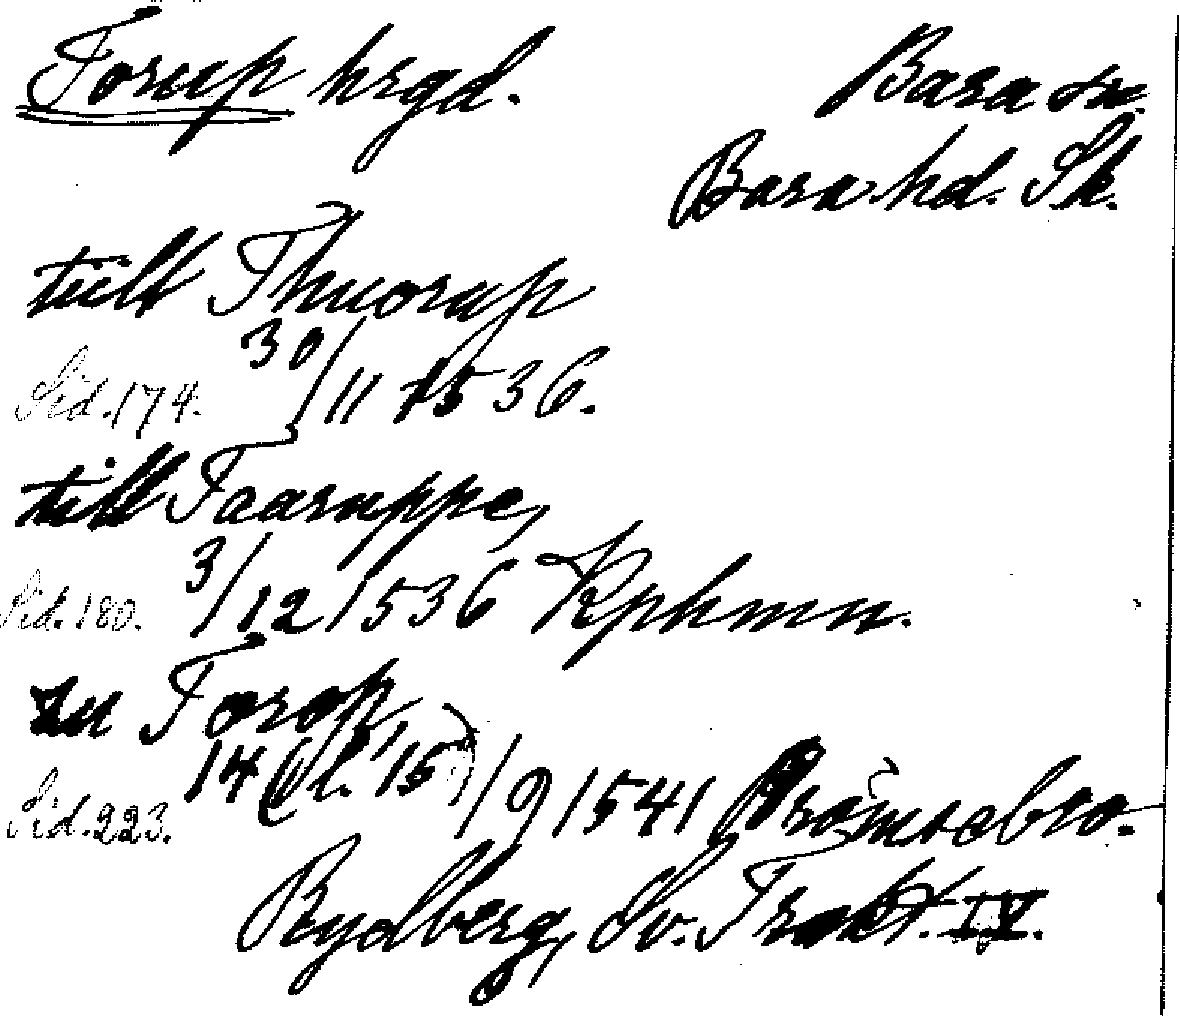 Torup hrgd. Bara sn.
Bara hd. Sk.
tiill Thuorup
Sid. 174. 30/11 1536.
till Taaruppe,
Sid. 180. 3/12 1536 Kphmn.
zu Torop,
Sid. 223. 14 (el. 15)/9 1541 Brömsebro.
Rydberg, Sv. Trakt. IV.